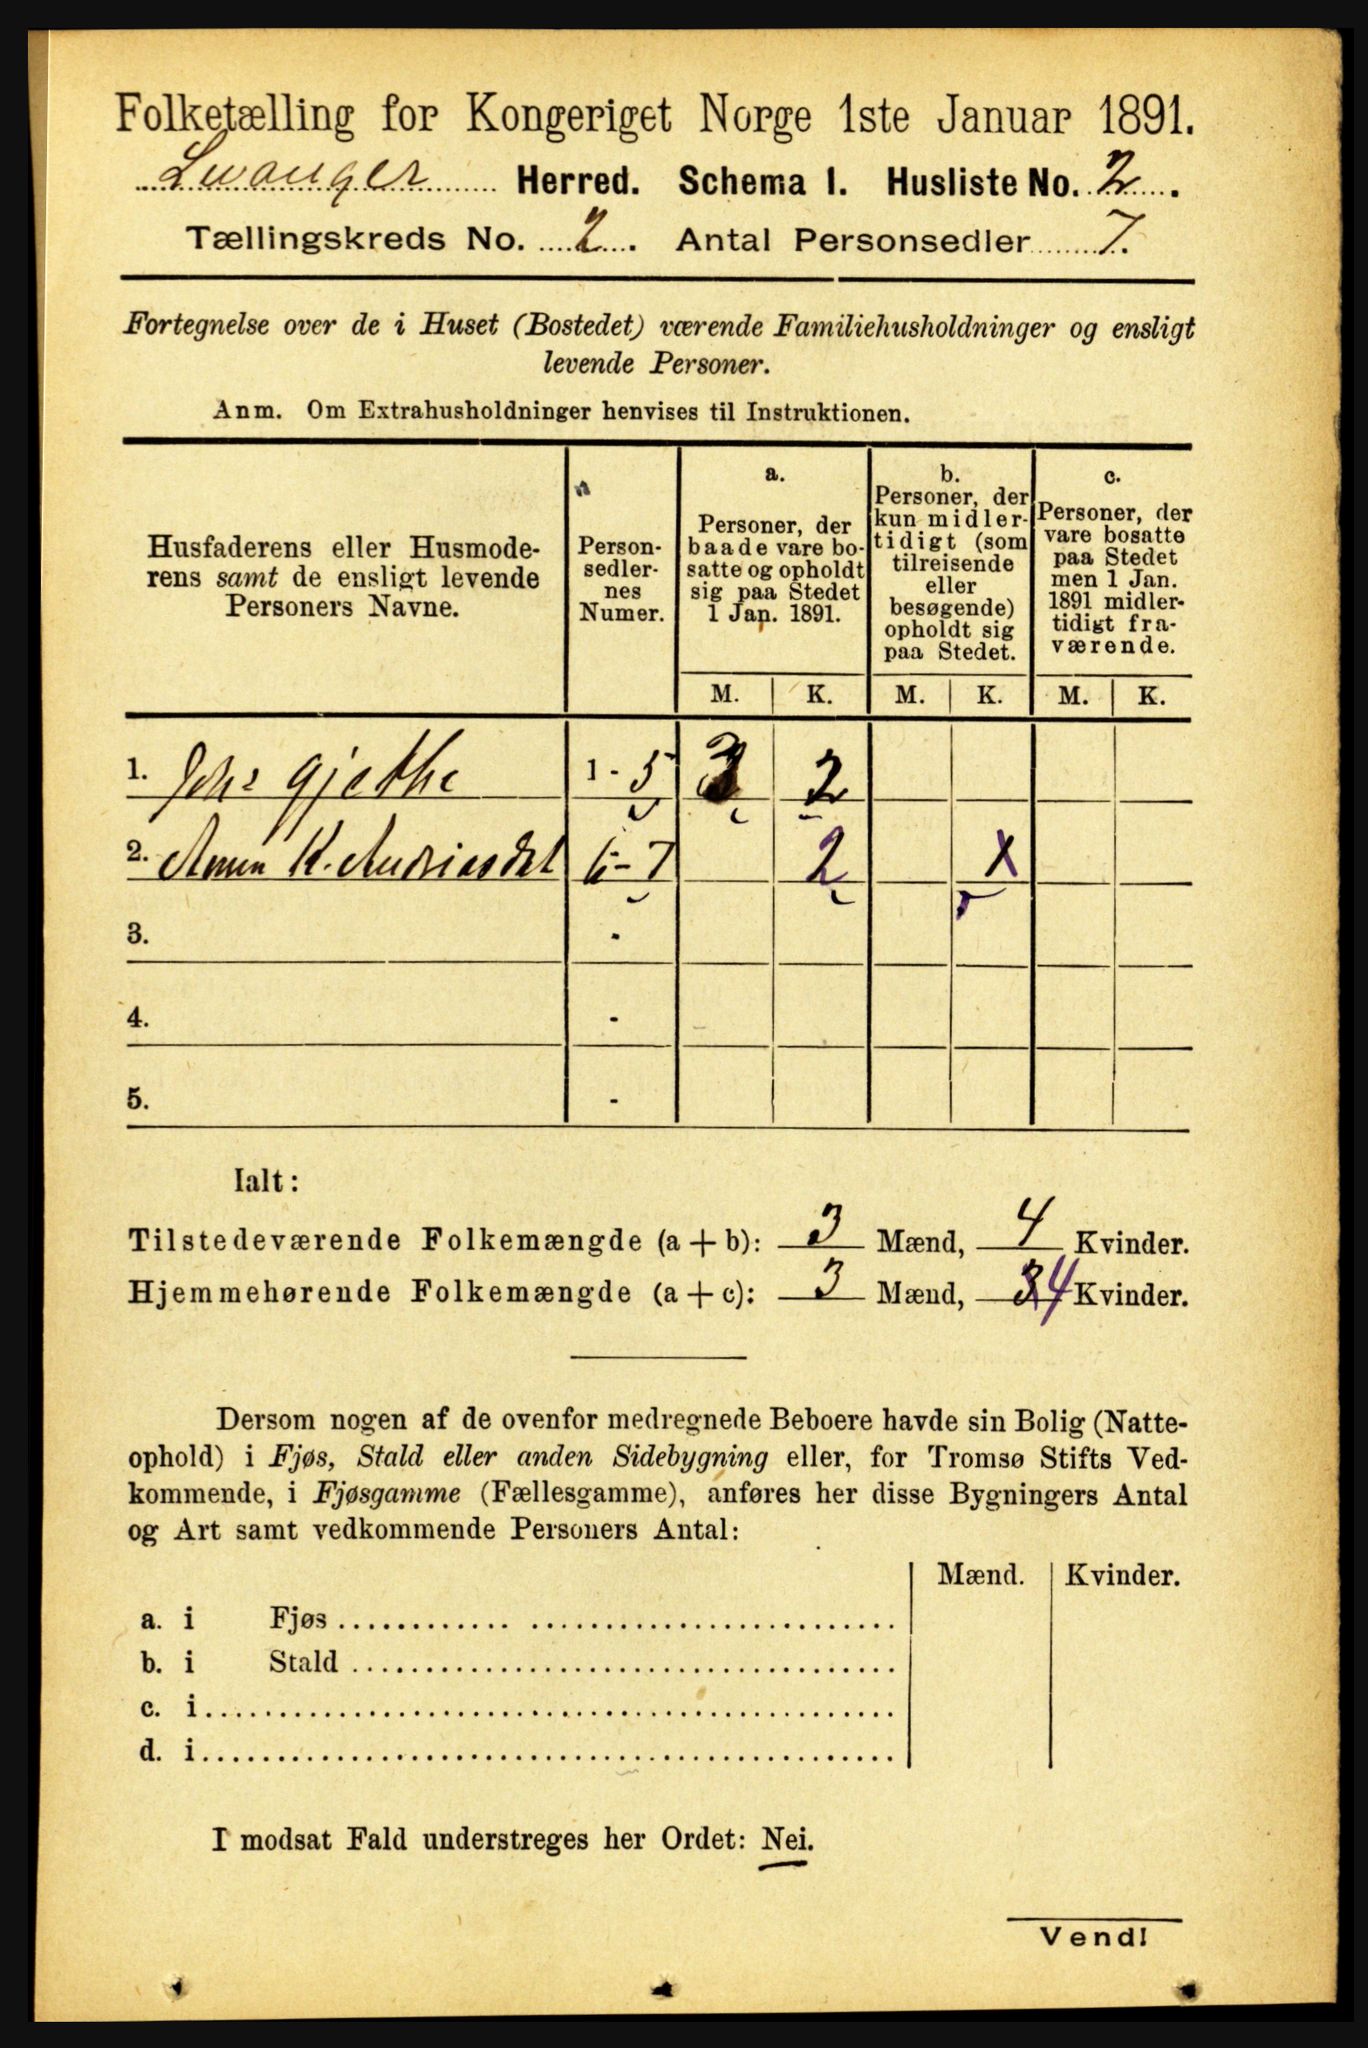 Folketælling for Kongeriget Norge 1ste Januar 1891.
Leikanger Herred. Schema I. Husliste No. 2.
Tællingskreds No. 2. Antal Personsedler 7.
Fortegnelse over de i Huset (Bostedet) værende Familiehusholdninger og ensligt
levende Personer.
Anm. Om Extrahusholdninger henvises til Instruktionen.
Husfaderens eller Husmode-
rens samt de ensligt levende
Personers Navne.
Person-
sedler-
nes
Numer.
a.
Personer, der
baade vare bo-
satte og opholdt
sig paa Stedet
1 Jan. 1891.
b.
Personer, der
kun midler-
tidigt (som
tilreisende
eller
besøgende)
opholdt sig
paa Stedet.
c.
Personer, der
vare bosatte
paa Stedet
men 1 Jan.
1891 midler-
tidigt fra-
værende.
M. K. M. K. M. K.
1. Gjethe 1 - 5 3 2
2. Anna K. Andriesdat 6 - 7 2 X
3. -
4. -
5. -
Ialt:
Tilstedeværende Folkemængde (a + b): 3 Mænd, 4 Kvinder.
Hjemmehørende Folkemængde (a + c): 3 Mænd, 3 4 Kvinder.
Dersom nogen af de ovenfor medregnede Beboere havde sin Bolig (Natte-
ophold) i Fjøs, Stald eller anden Sidebygning eller, for Tromsø Stifts Ved-
kommende, i Fjøsgamme (Fællesgamme), anføres her disse Bygningers Antal
og Art samt vedkommende Personers Antal:
Mænd. Kvinder.
a. i Fjøs
b. i Stald
c. i
d. i
I modsat Fald understreges her Ordet: Nei.
Vend!